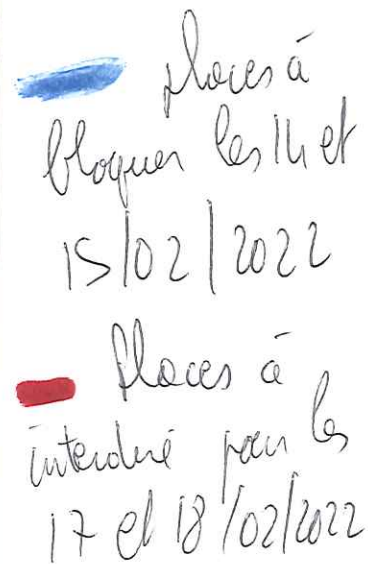 places à
bloquer les 14 et
15/02/2022
Places à
interdire pour les
17 et 18/02/2022